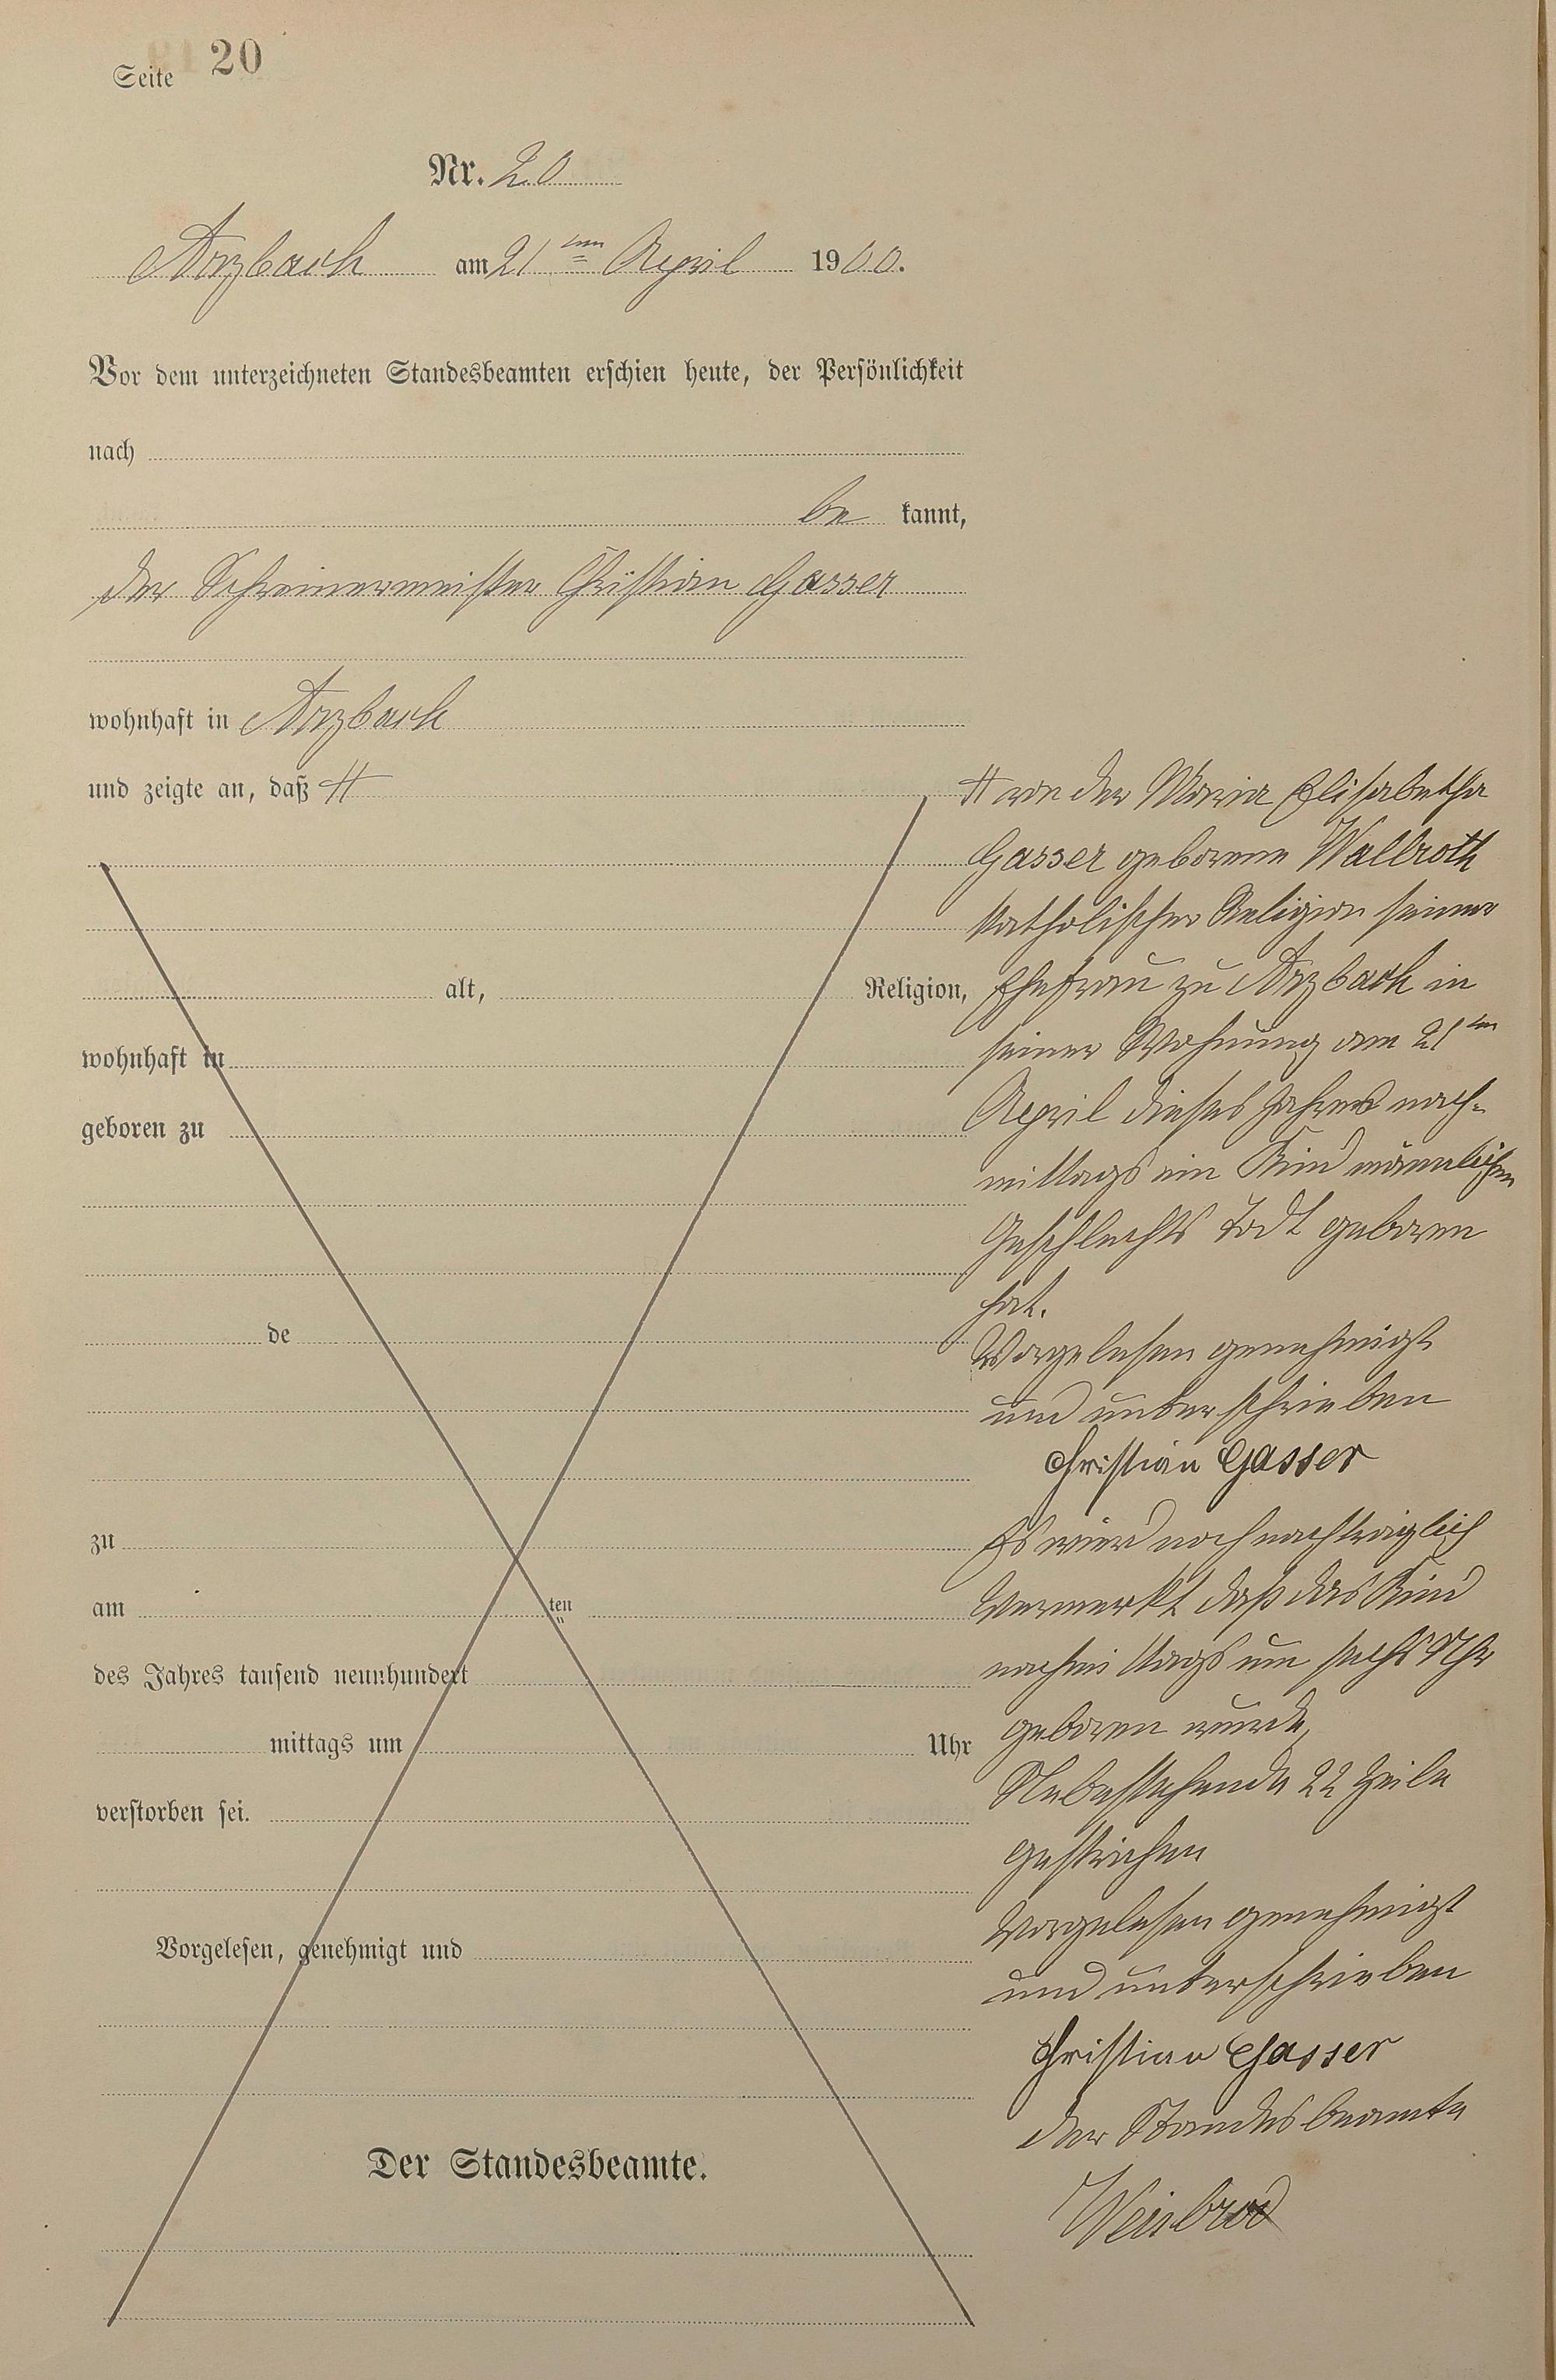 Seite 20
Nr. 20
Arzbach am 21 ten April 1900.
Vor dem unterzeichneten Standesbeamten erschien heute, der Persönlichkeit
nach
be kannt,
der Schreinermeister Christian Gasser
wohnhaft in Arzbach
und zeigte an, daß #
alt, Religion,
wohnhaft in
geboren zu
de
zu
am ten
des Jahres tausend neunhundert
mittags um Uhr
verstorben sei.
Vorgelesen, genehmigt und
Der Standesbeamte.
# von der Maria Elisabetha
Gasser geborene Wallroth
katholischer Religion seiner
Ehefrau zu Arzbach in
seiner Wohnung am 21 ten
April dieses Jahres nach-
mittags ein Kind männlichen
Geschlechts todt geboren
hat.
Vorgelesen genehmigt
und unterschrieben
Christian Gasser
Es wird noch nachträglich
Vermerkt daß das Kind
nachmittags um sechs Uhr
geboren wurde,
Nebestehende 22 Zeile
gestrichen
Vorgelesen genehmigt
und unterschrieben
Christian Gasser
der Standesbeamte
Weisbrod